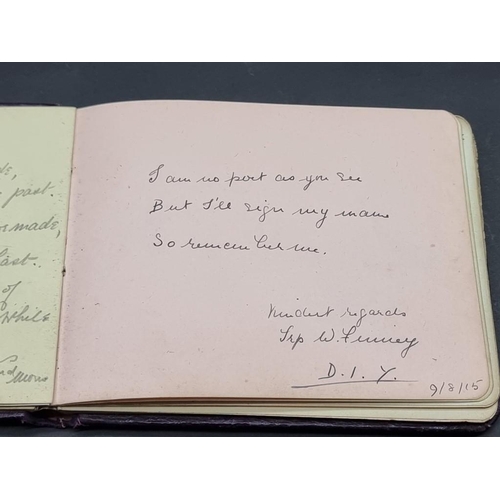 de,
past.
made,
last.
of
while
I am no poet as you see
But I'll sign my name
So remember me.
Kindest regards
Trp W. Finney
D. I. Y.
9/8/15